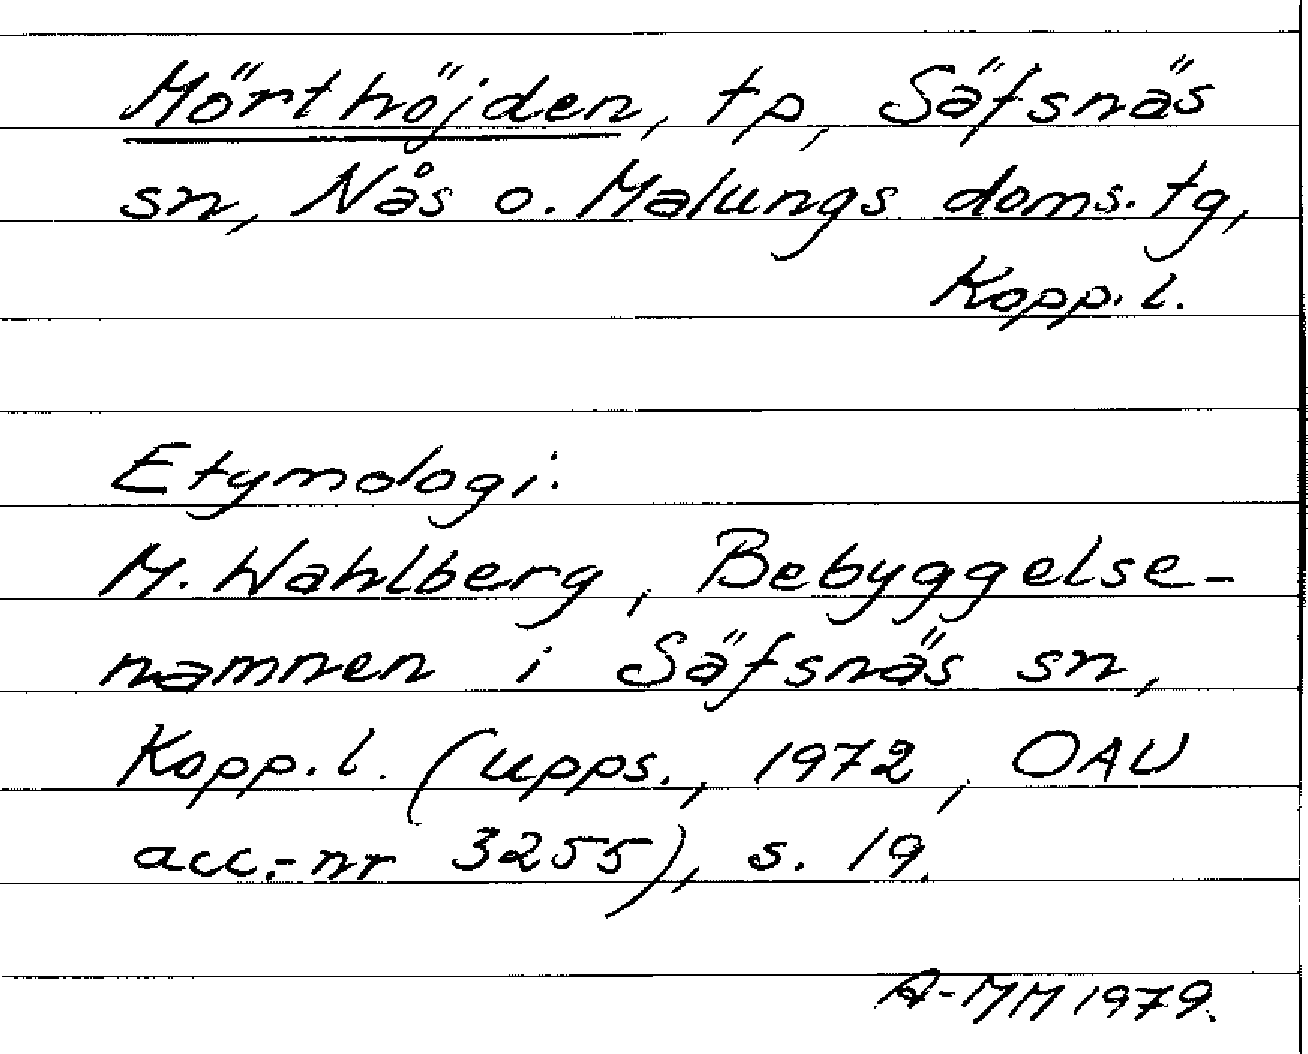 Mörthöjden, tp, Säfsnäs
sn, Nås o. Malungs doms. tg,
Kopp. l.
Etymologi:
M. Wahlberg, Bebyggelse-
namnen i Säfsnäs sn,
Kopp. l. (Upps., 1972, OAU
acc.-nr 3255), s. 19.
A-MM 1979.